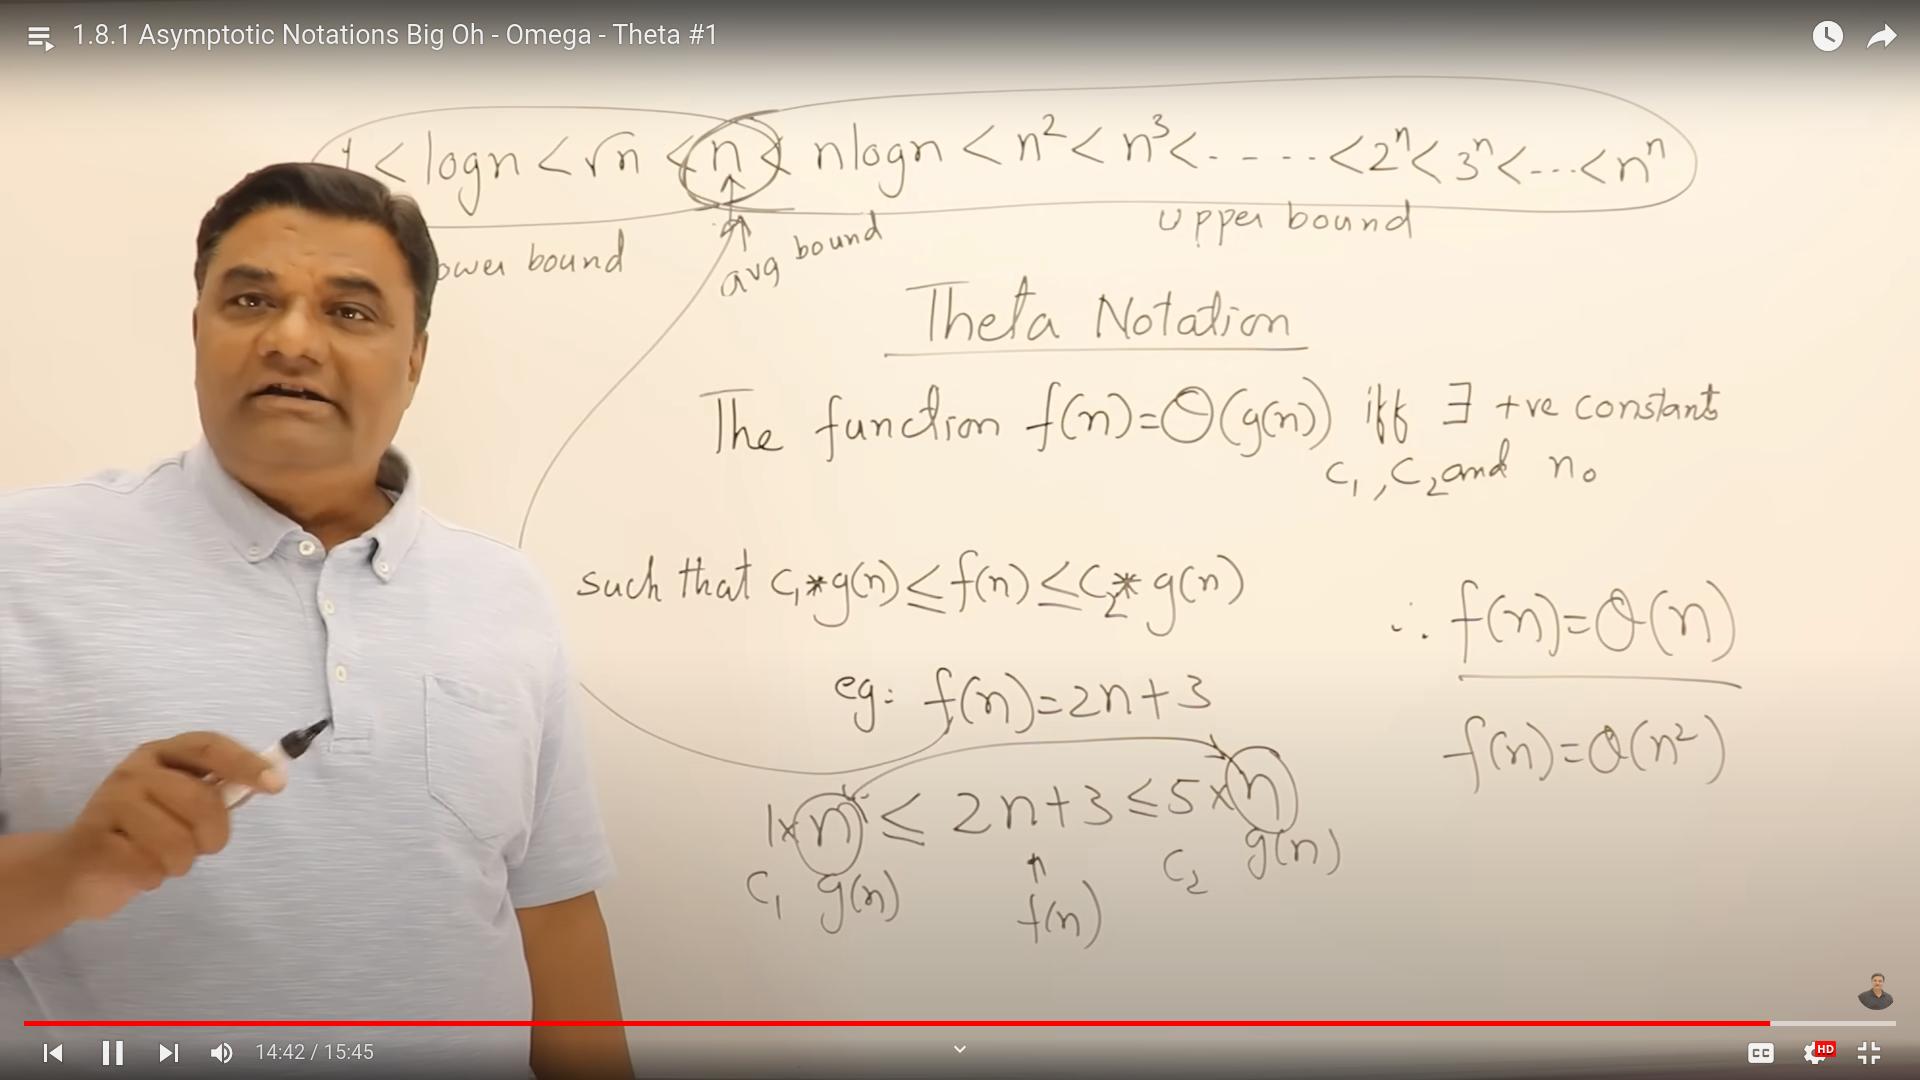 1.8.1 Asymptotic Notations Big Oh - Omega - Theta #1
1 < logn < √n < n < nlogn < n² < n³ < - - - - - < 2ⁿ < 3ⁿ < - - - < nⁿ
ower bound
avg bound
upper bound
Theta Notation
The function f(n)=Θ(g(n)) iff ∃ +ve constants
c₁, c₂ and n₀
such that c₁*g(n) ≤ f(n) ≤ c₂* g(n)
∴ f(n)=Θ(n)
eg: f(n)=2n+3
f(n)=Θ(n²)
1×n ≤ 2n+3 ≤ 5×n
c₁ g(n) f(n) c₂ g(n)
14:42 / 15:45
CC
HD